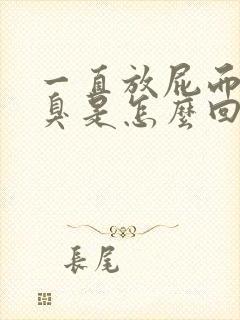 一直放屁而
臭是怎麼回
長尾